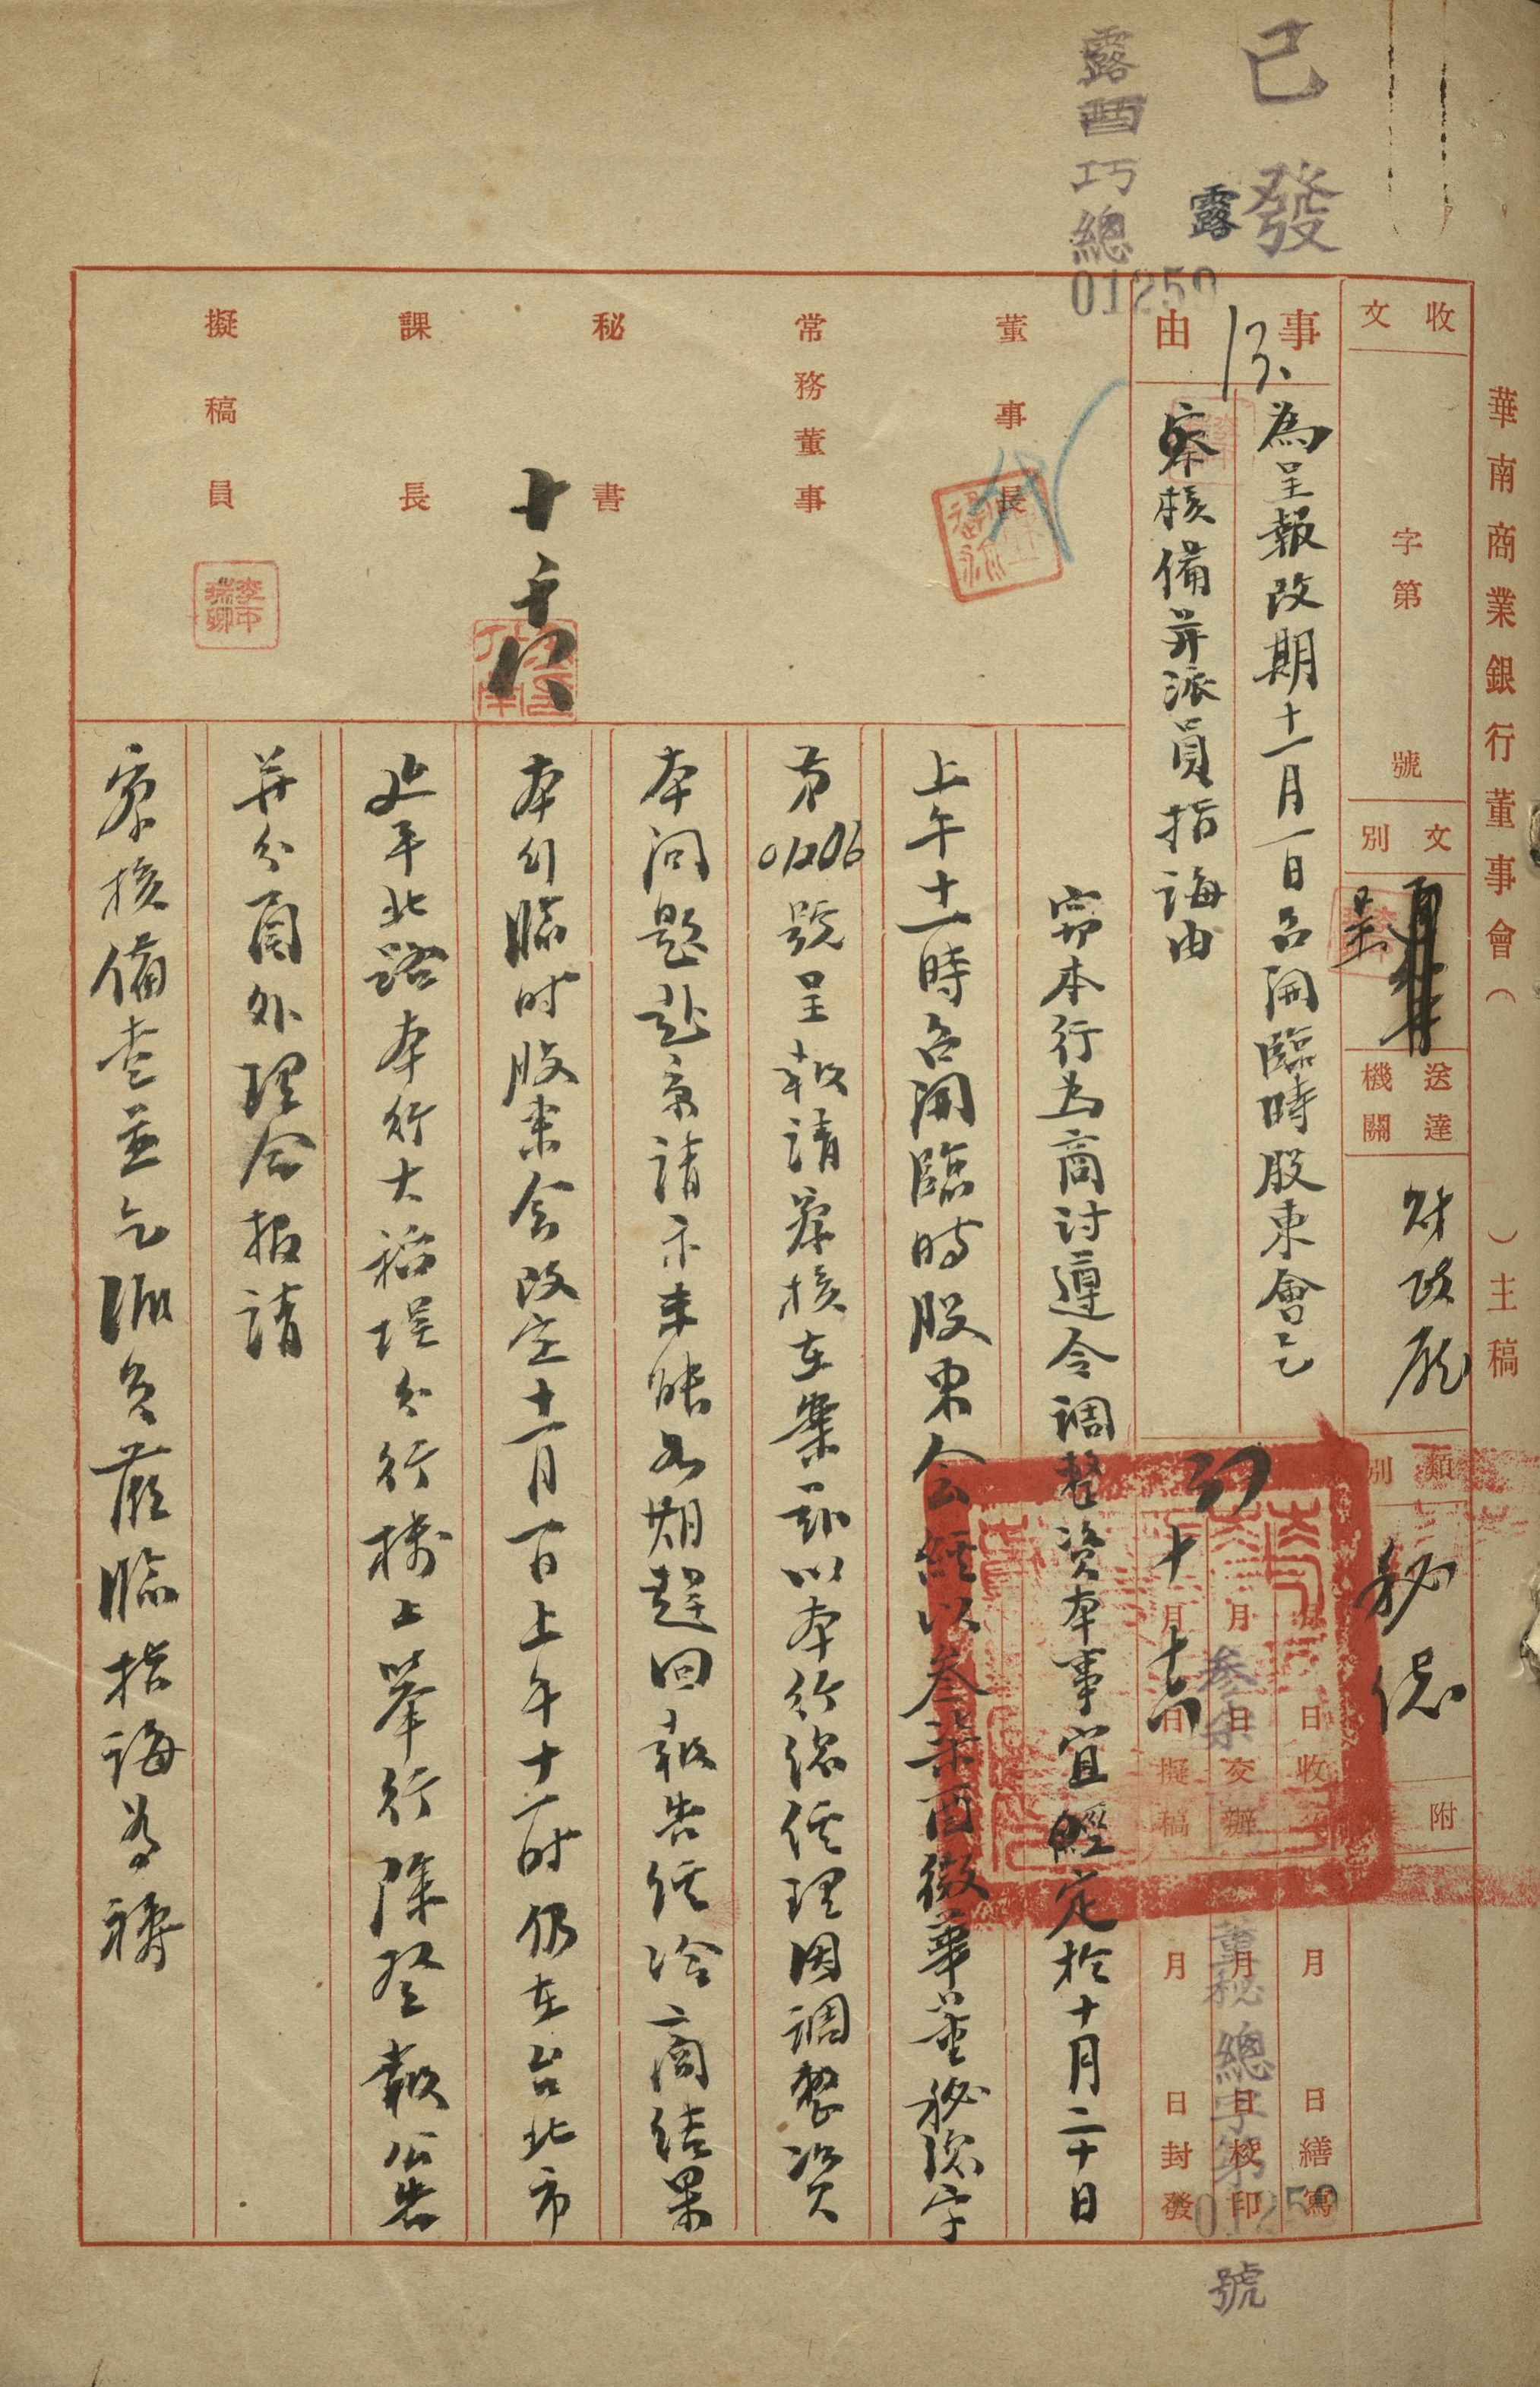 已發
露
露酉巧總
01259
華南商業銀行董事會（　　）主稿
收文　字第　號
文別　呈
送達機關　財政廳
類別　秘總
附
事由
為呈報改期十一月一日召開臨時股東會乞
察核備并派員指誨由
月　日收文
月　日交辦
十月十六日擬稿
月　日繕寫
月　日校印
月　日封發
參柒
董秘總字第01259號
董事長
常務董事
秘書
課長
擬稿員
代
十、十六
竊本行為商討遵令調整資本事宜經定於十月二十日
上午十一時召開臨時股東会經以叁柒酉微華董秘總字
第01206號呈報請察核在案茲以本行總經理因調整資
本問題赴京請示未能如期趕回報告經洽商結果
本行臨时股東会改定十一月一日上午十一时仍在台北市
延平北路本行大稻埕分行樓上举行除登報公告
并分函外理合报請
察核備查並乞派員蒞臨指誨為禱